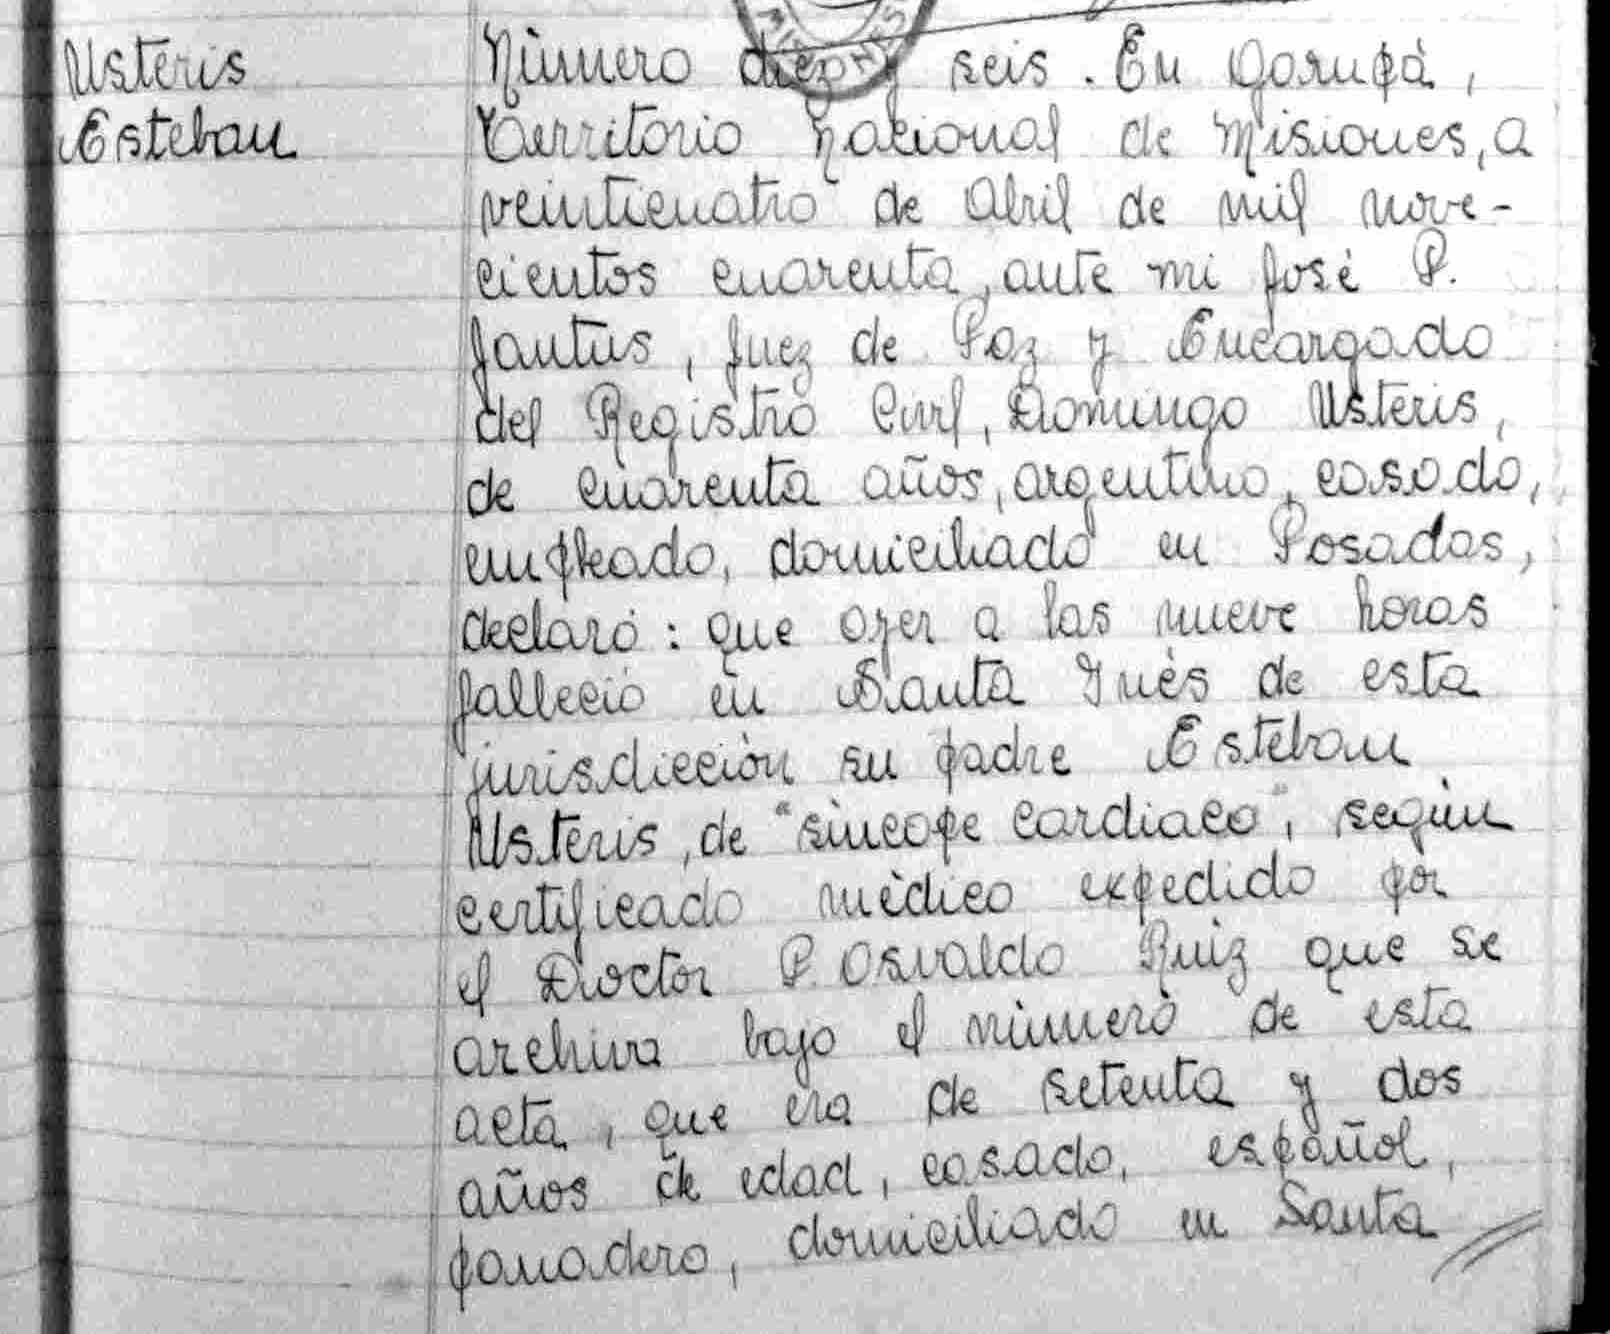 Usteris
Esteban
Número diez y seis. En Garupá,
Territorio Nacional de Misiones, a
veinticuatro de Abril de mil nove-
cientos cuarenta, ante mi José P.
Jantus, Juez de Paz y Encargado
del Registro Civil, Domingo Usteris,
de cuarenta años, argentino, casado,
empleado, domiciliado en Posadas,
declaró: que ayer a las nueve horas
falleció en Santa Inés de esta
jurisdicción su padre Esteban
Usteris, de "síncope cardiaco", según
certificado médico expedido por
el Doctor P. Osvaldo Ruiz que se
archiva bajo el número de esta
acta, que era de setenta y dos
años de edad, casado, español,
panadero, domiciliado en Santa